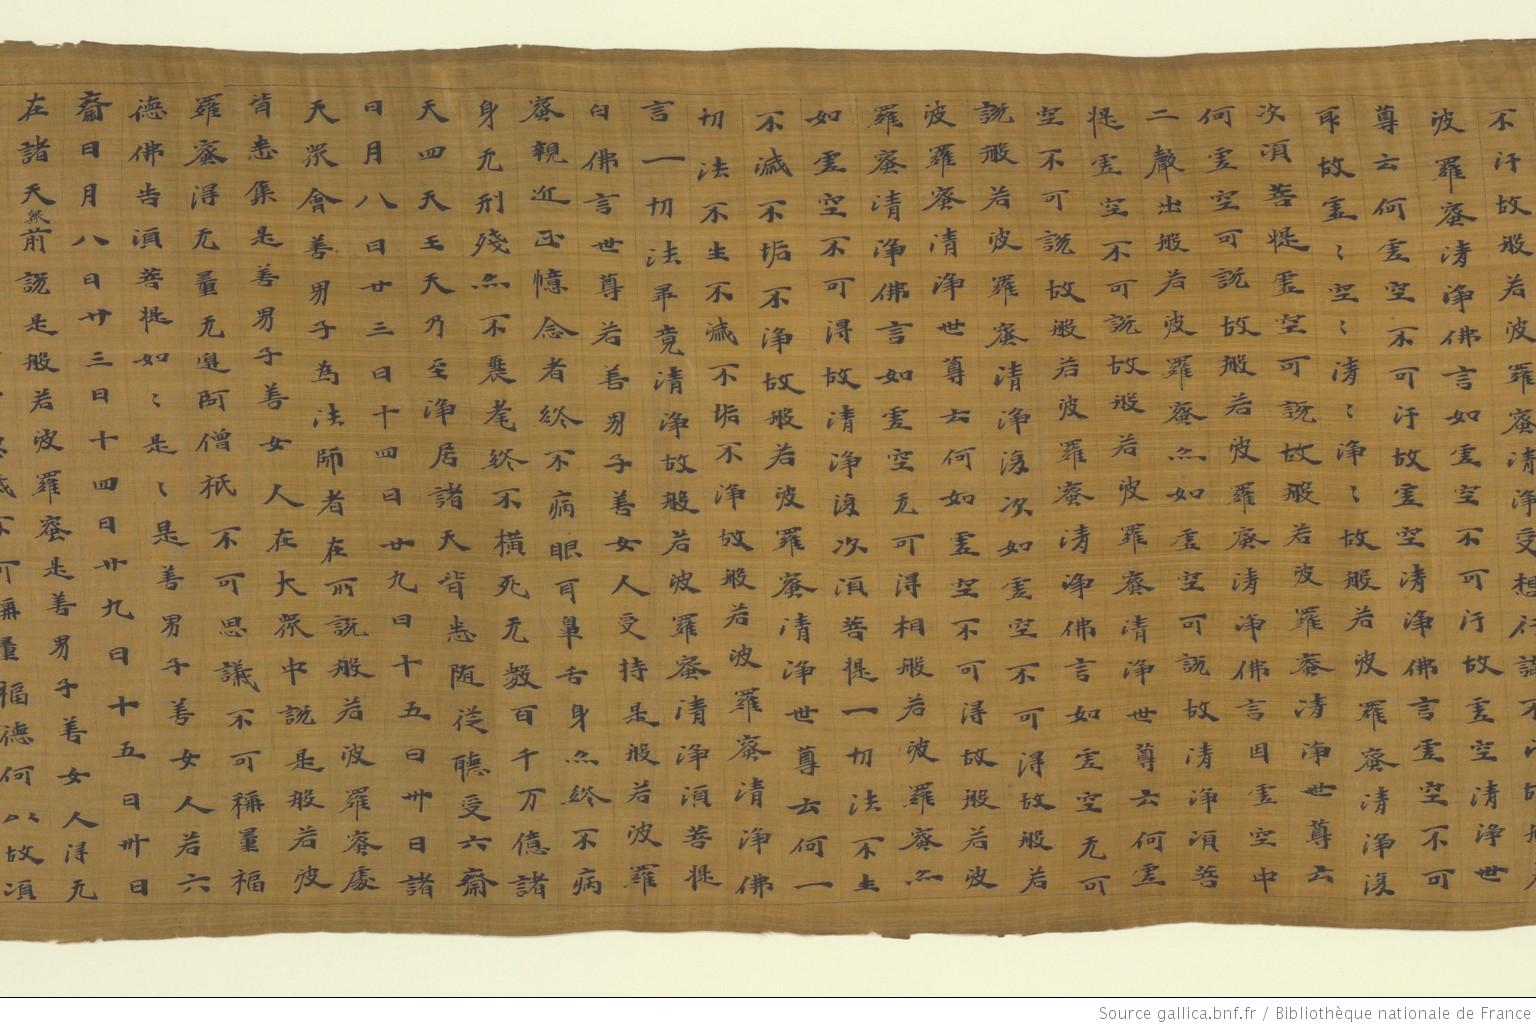 不汙故般若波羅蜜清淨受想行識不汙故般
波羅蜜清淨佛言如虛空不可汙故虛空清淨世
尊云何虛空不可汙故虛空清淨佛言虛空不可
取故虛〻空〻清〻淨〻故般若波羅蜜清淨復
次須菩提虛空可說故般若波羅蜜清淨世尊云
何虛空可說故般若波羅蜜清淨佛言因虛空中
二聲出般若波羅蜜亦如虛空可說故清淨須菩
提虛空不可說故般若波羅蜜清淨世尊云何虛
空不可說故般若波羅蜜清淨佛言如虛空无可
說般若波羅蜜清淨復次如虛空不可得故般若
波羅蜜清淨世尊云何如虛空不可得故般若波
羅蜜清淨佛言如虛空无可得相般若波羅蜜亦
如虛空不可得故清淨復次須菩提一切法不生
不滅不垢不淨故般若波羅蜜清淨世尊云何一
切法不生不滅不垢不淨故般若波羅蜜清淨佛
言一切法畢竟清淨故般若波羅蜜清淨須菩提
白佛言世尊若善男子善女人受持是般若波羅
蜜親近正憶念者終不病眼耳鼻舌身亦終不病
身无刑殘亦不襄耄終不橫死无數百千万億諸
天四天王天乃至淨居諸天皆悉隨從聽受六齋
日月八日廿三日十四日廿九日十五日卅日諸
天眾會善男子為法師者在所說般若波羅蜜處
皆悉集是善男子善女人在大眾中說是般若波
羅蜜得无量无邊阿僧祇不可思議不可稱量福
德佛告須菩提如〻是〻是善男子善女人若六
齋日月八日廿三日十四日廿九日十五日卅日
在諸天眾前說是般若波羅蜜是善男子善女人得无
不可稱量福德何以故須
Source gallica.bnf.fr / Bibliothèque nationale de France